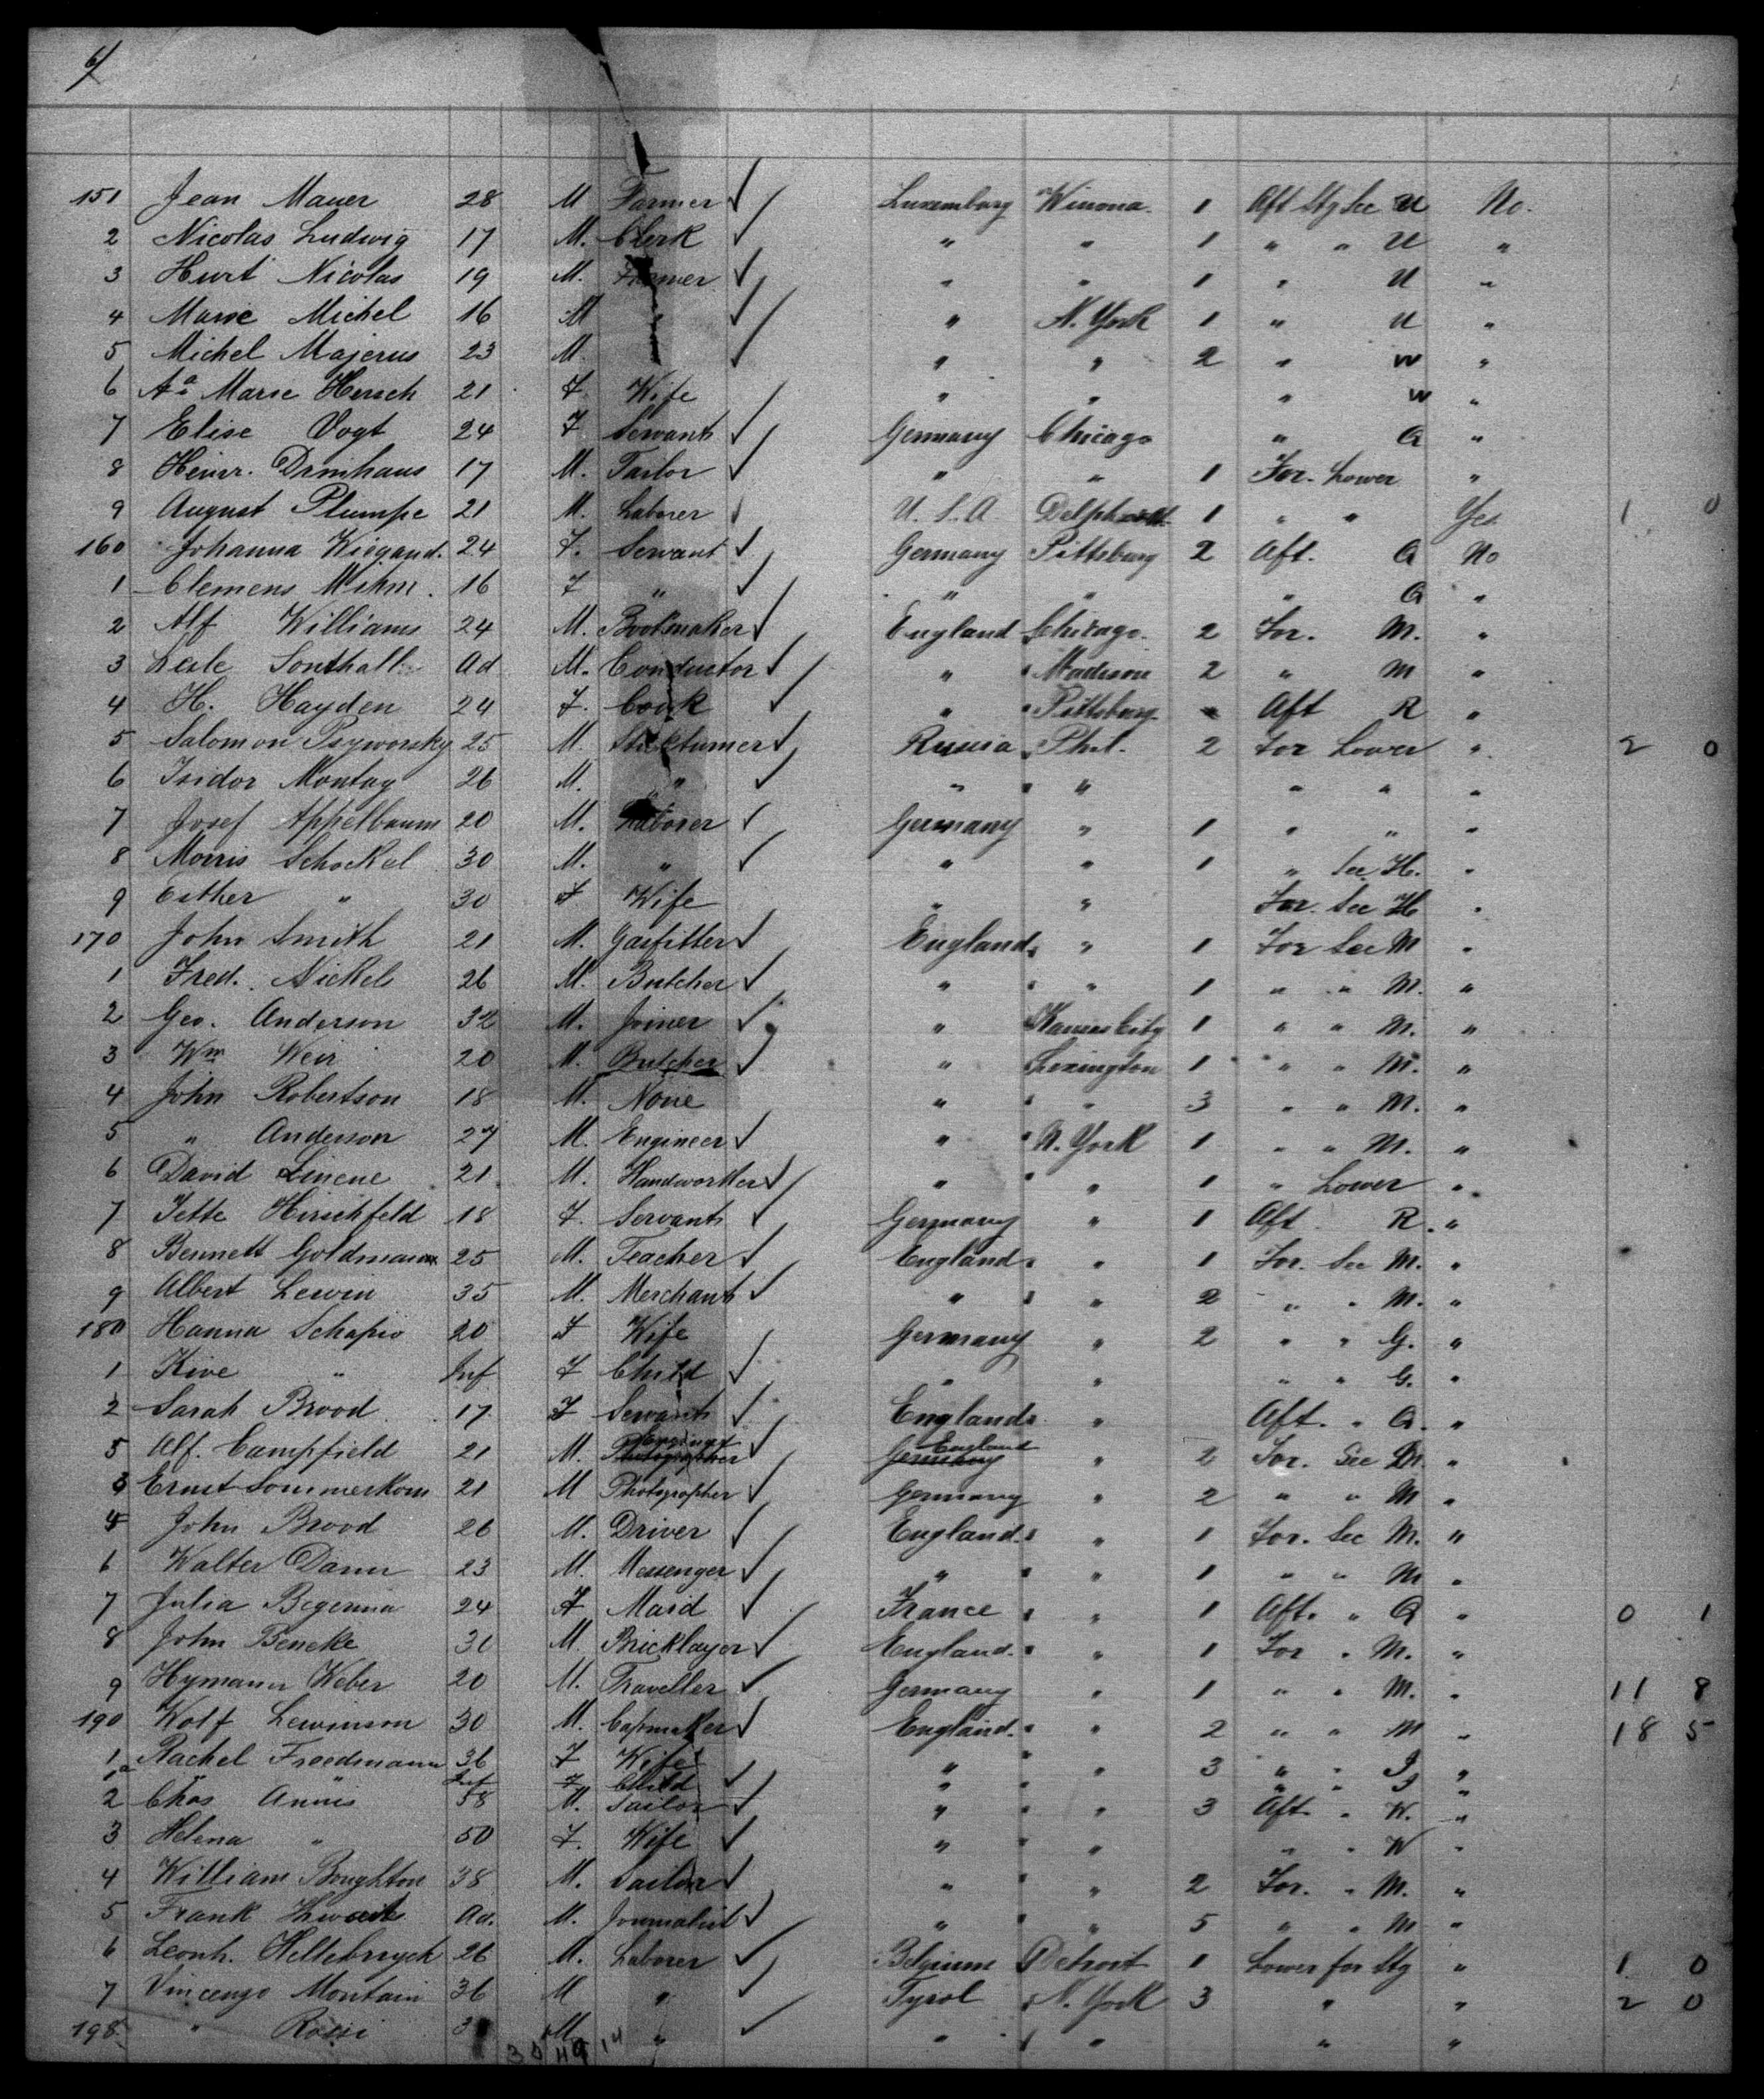 6/
151 Jean Mauer 28 M Farmer Luxemburg Winona. 1 Aft Stg Sec U No.
2 Nicolas Ludwig 17 M. Clerk " " 1 " " U "
3 Hurt Nicolas 19 M. Farmer " " 1 " U "
4 Marie Michel 16 M " " N. York 1 " U "
5 Michel Majerus 23 M. " " 2 " W "
6 Aª Marie Hersch 21 F. Wife " " " W "
7 Elise Vogt 24 F. Servant Germany Chicago " Q "
8 Heinr. 17 M. Tailor " " 1 For. Lower "
9 August Plumpe 21 M. Laborer U.S.A. 1 " " Yes 1 0
160 Johanna Wiegand. 24 F. Servant Germany Pittsburg 2 Aft. Q No
1 Clemens Mihm. 16 F " " " " Q "
2 Alf Williams 24 M. Bootmaker England Chicago. 2 For. M. "
3 Southall Ad M. Conductor " Madison 2 " M "
4 H. Hayden 24 F. Cook " Pittsburg Aft R "
5 Salomon Psyworsky 25 M. Russia Phil. 2 For Lower " 2 0
6 Isidor Montag 26 M. " " " " " "
7 Josef Appelbaum 20 M. Laborer Germany " 1 " " "
8 Morris Schockel 30 M. " " " 1 " Sec H. "
9 Esther " 30 F Wife " " For. Sec H "
170 John Smith 21 M. Gasfitter England " 1 For Sec M "
1 Fred. Nickels 26 M. Butcher " " 1 " " M. "
2 Geo. Anderson 32 M. Joiner " Kansas City 1 " " M. "
3 Wm Weir 20 M. Butcher " Lexington 1 " " M. "
4 John Robertson 18 M. None " " 3 " " M. "
5 " Anderson 27 M. Engineer " N. York 1 " " M. "
6 David Linene 21. M. Handworker " " 1 " Lower "
7 Jette Hirschfeld 18 F. Servant Germany " 1 Aft R. "
8 Bennett Goldmann 25 M. Teacher England " 1 For. Sec M. "
9 Albert Lewin 35 M. Merchant " " 2 " " M. "
180 Hanna Schapio 20 F Wife Germany " 2 " " G. "
1 Kive " Inf F Child " " " " G. "
2 Sarah Brood 17 F Servant England " Aft. " Q. "
5 Alf. Campfield 21 M. Photographer Germany England " 2 For. Sec M. "
3 Ernst Sommerkorn 21 M Photographer Germany " 2 " " M "
4 John Brood 26 M. Driver England. " 1 For. Sec M. "
6 Walter Dann 23 M. Messenger " " 1 " " M "
7 Julia Begerina 24 F Maid France " 1 Aft. " Q " 0 1
8 John Beneke 31 M. Bricklayer England. " 1 For " M. "
9 Hymann Weber 20 M. Traveller Germany " 1 " " M. " 11 8
190 Wolf Lewinson 30 M. Capmaker England. " 2 " " M " 18 5
1 Rachel Freedmann 36 F Wife " " 3 " " J "
1a " " Inf F Child " " " " J "
2 Chas Annis 58 M. Sailor " " 3 Aft " W. "
3 Helena " 50 F. Wife " " " " W "
4 William Boughton 38 M. Sailor " " 2 For. " M. "
5 Frank Ad. M. Journalist " " 5 " " M "
6 Leonh. Hellebruyck 26 M. Laborer Belgium Detroit 1 Lower for Stg " 1 0
7 Vincenzo Montain 36 M " Tyrol N. York 3 " " 2 0
198 " Rossi 3 M. " " " " "